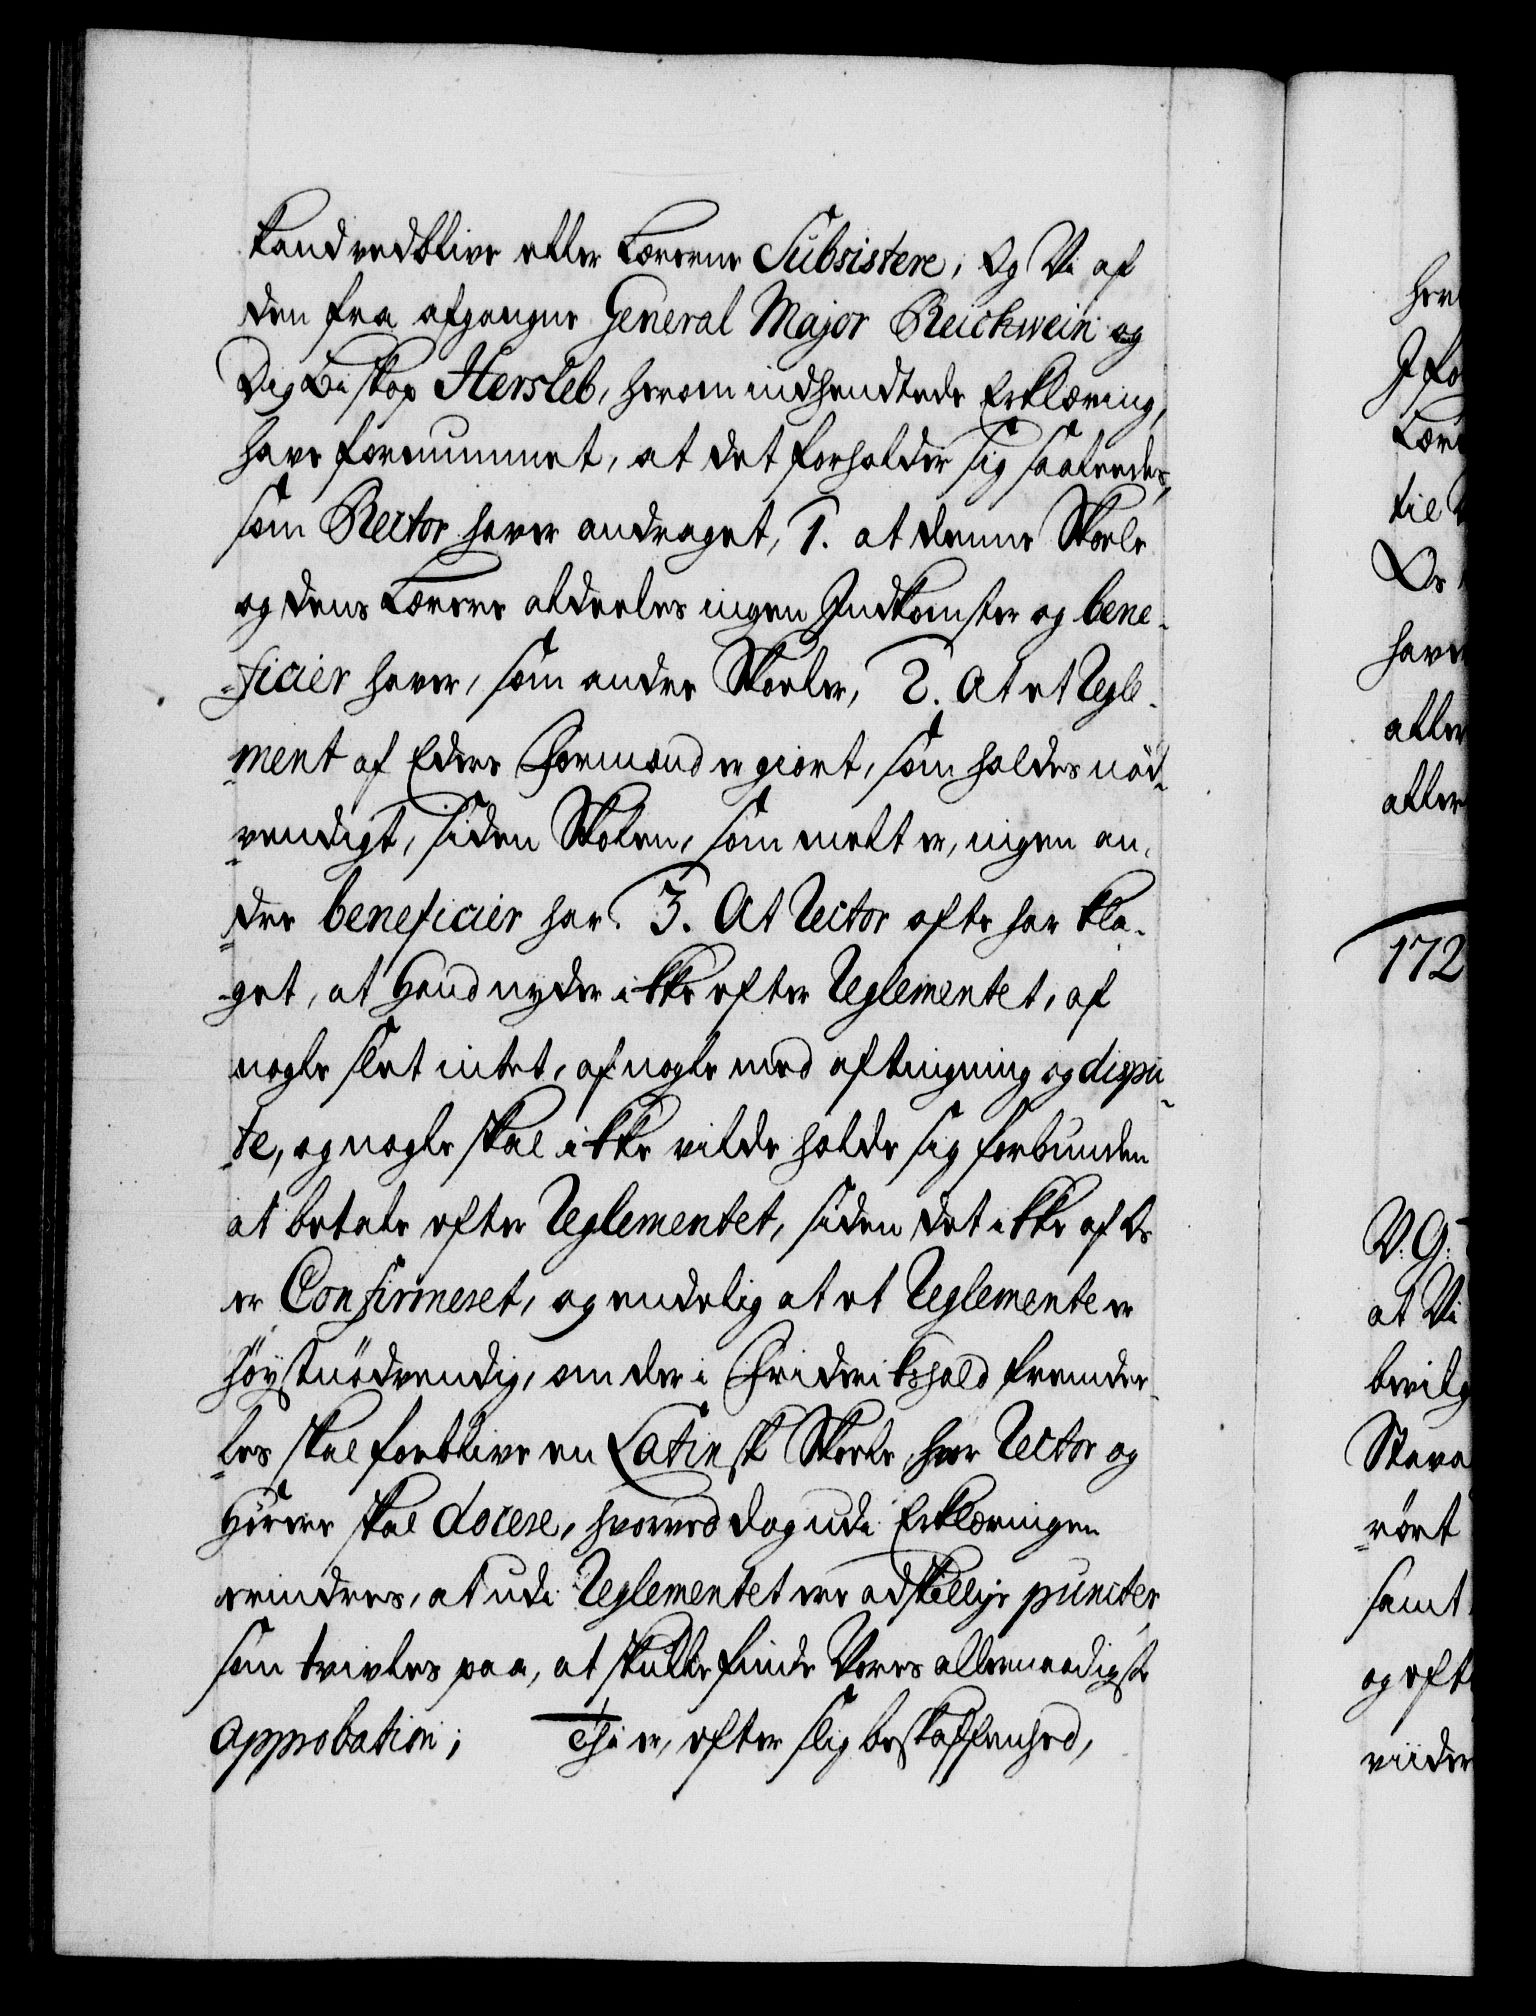 kand vedblive eller Lærerne Subsistere; Og Vi af
den fra afgangne General Major Reichwein og
Dig Biskop Hersleb, herom indhendtede Erklæring,
have fornummet, at det forholder sig saaledes,
som Rector haver andraget, 1. at denne Skoele
og dens Lærere aldeeles ingen Indkomster og bene-
ficier haver, som andre Skoeler, 2. At et Regle-
ment af Eders Formænd er giort, som holdes nød-
vendigt, siden Skolen, som melt er, ingen an-
dre beneficier har. 3. At Rector ofte har kla-
get, at Hand nyder ikke efter Reglementet, af
nogle slet intet, af nogle med aftingning og dispu-
te, og nogle skal ikke vilde holde sig forbunden
at betale efter Reglementet, siden det ikke af Os
er Confirmeret, og endelig at et Reglemente er
høystnødvendig, om der i Friderikshald fremdee-
les skal forblive en Latinsk Skoele, hvor Rector og
Hörere skal docere, hvorved dog udi Erklæringen
erindres, at udi Reglementet ere adskillige puncter
som tvivles paa, at skulle finde Vores allernaadigste
Approbation; Thi er, efter slig beskaffenhed,
172
V: G:
at Vi
bevilg
Stava
rört
samt
og eft
viider